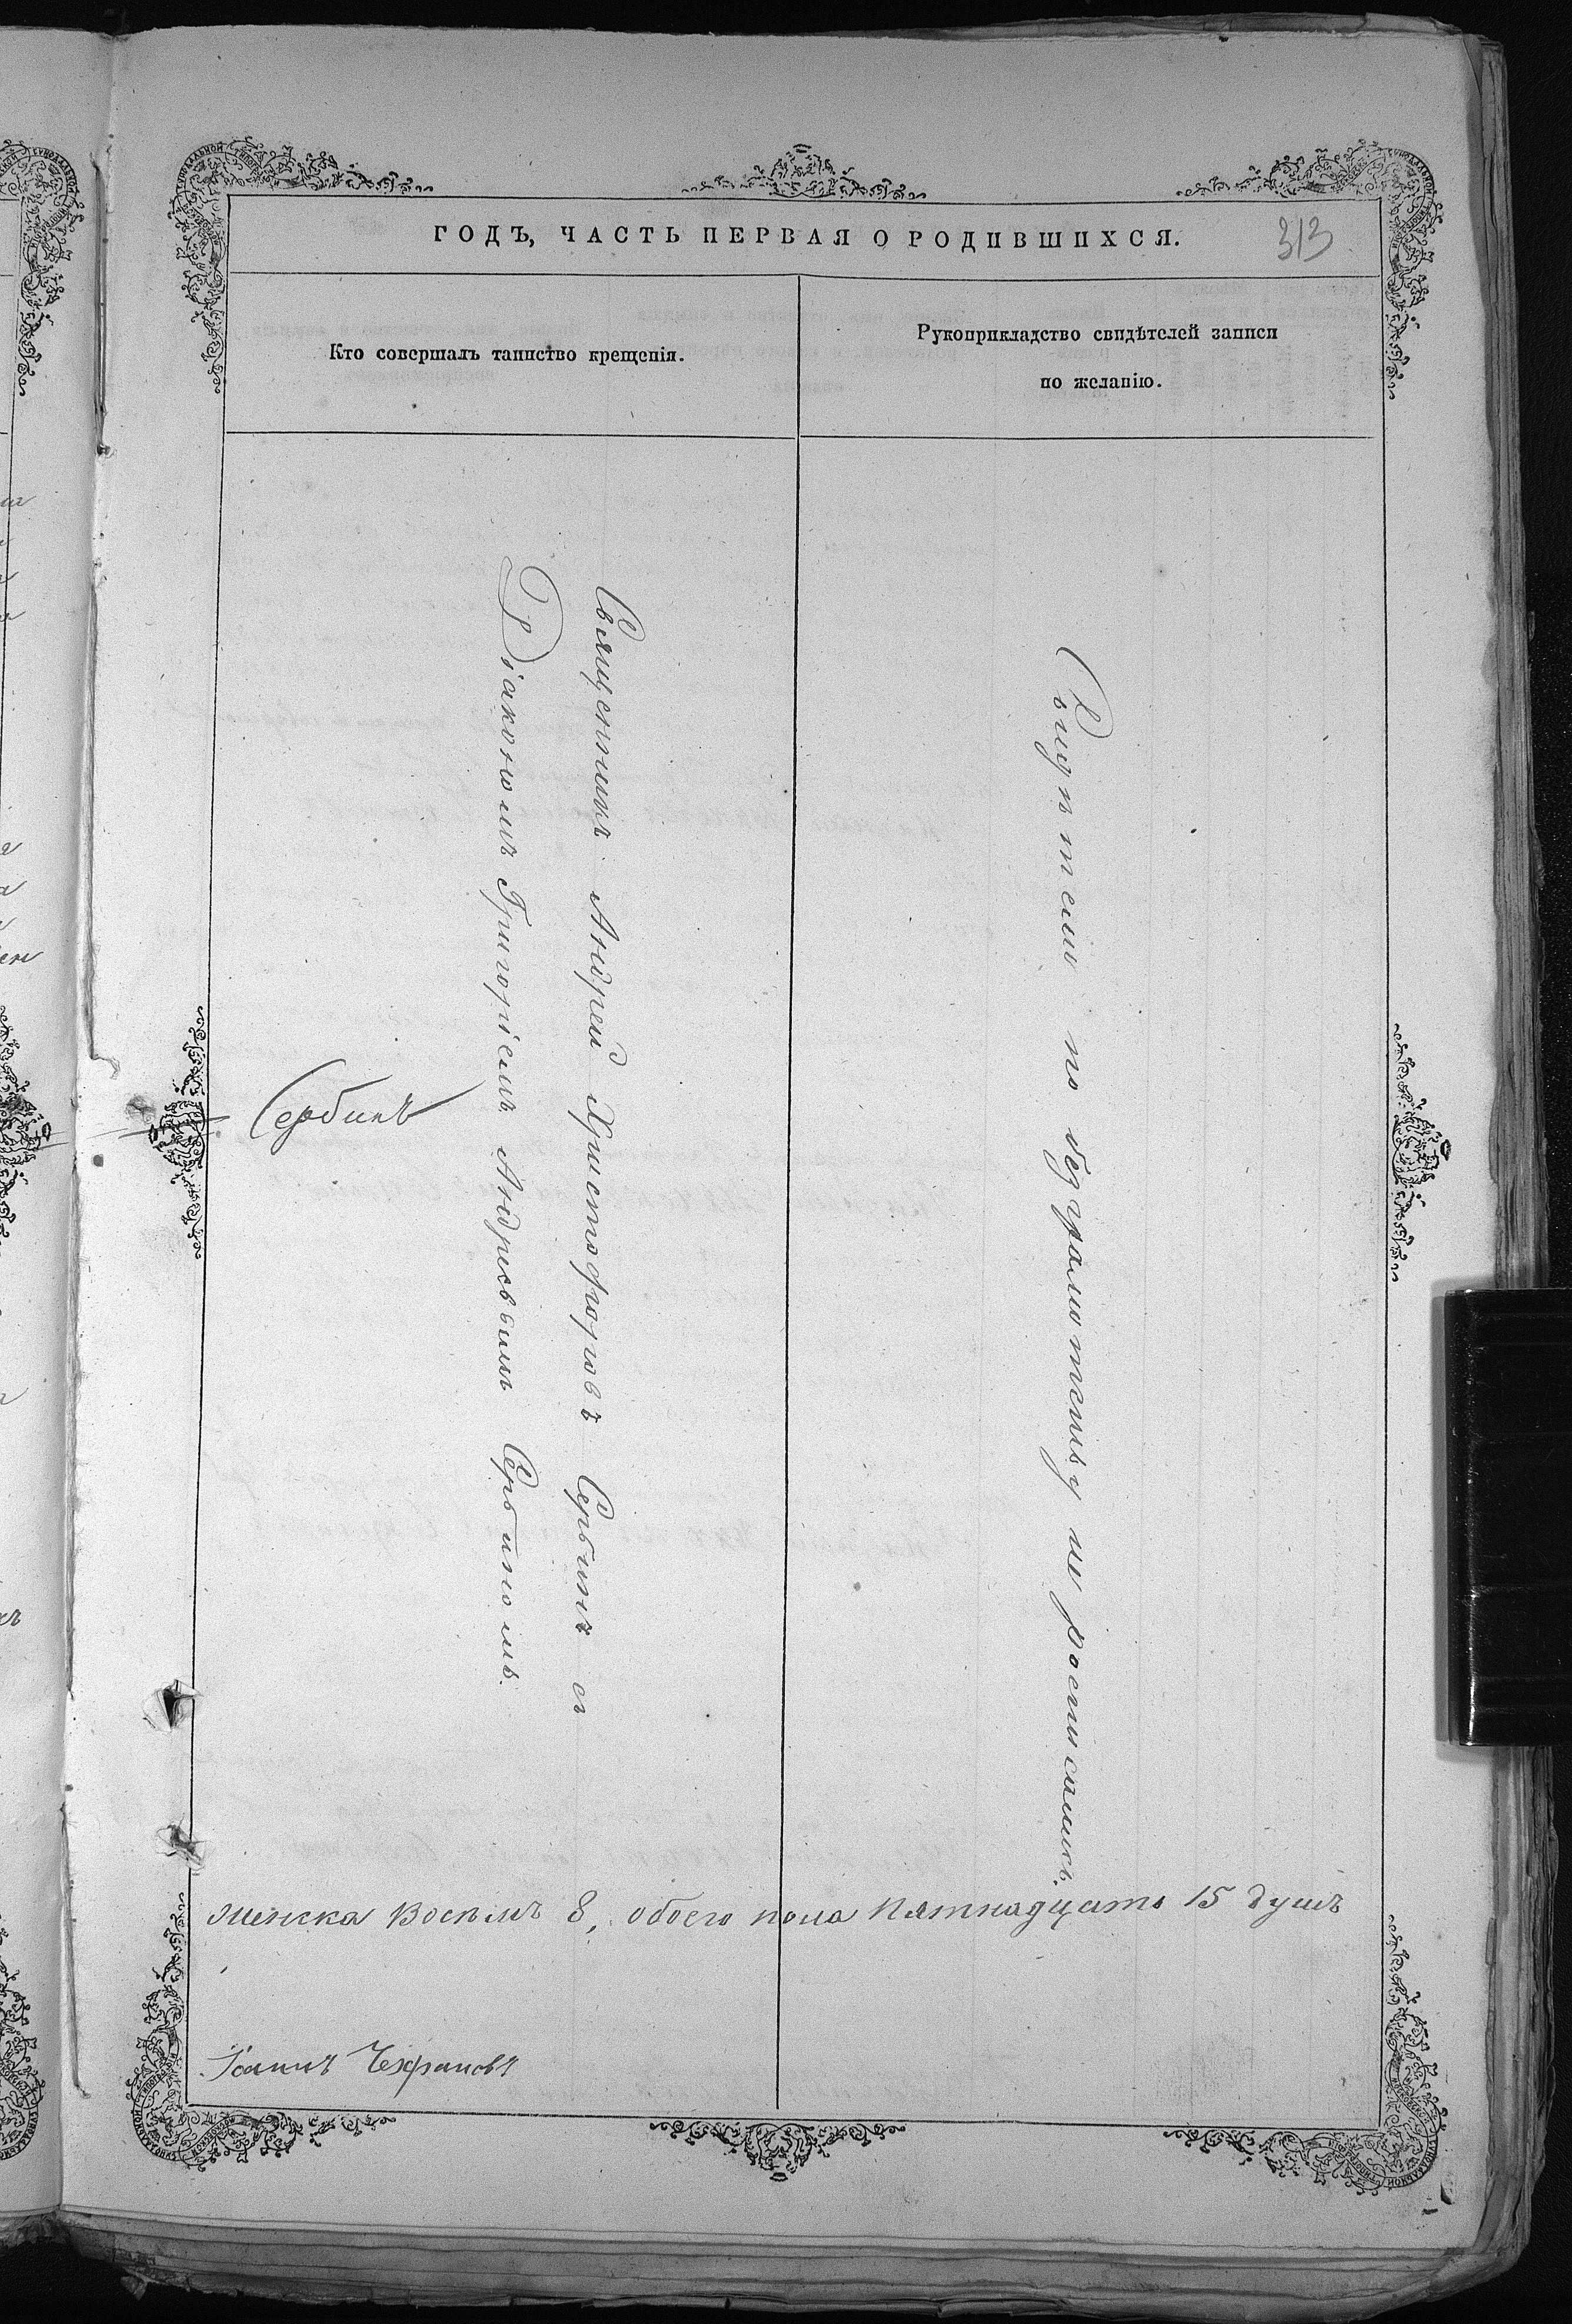 ГОДЪ, ЧАСТЬ ПЕРВАЯ О РОДИВШИХСЯ.
313
Кто совершалъ таинство крещенія.
Рукоприкладство свидѣтелей записи
по желанію.
Священникъ Андрей Христофоровъ Сербинъ съ
Діакономъ Григоріемъ Андреевымъ Сербиномъ.
Свидѣтели по безграмотству не росписались.
Сербинъ
женска восемь 8, обоего пола пятнадцать 15 душъ
Іоаннъ